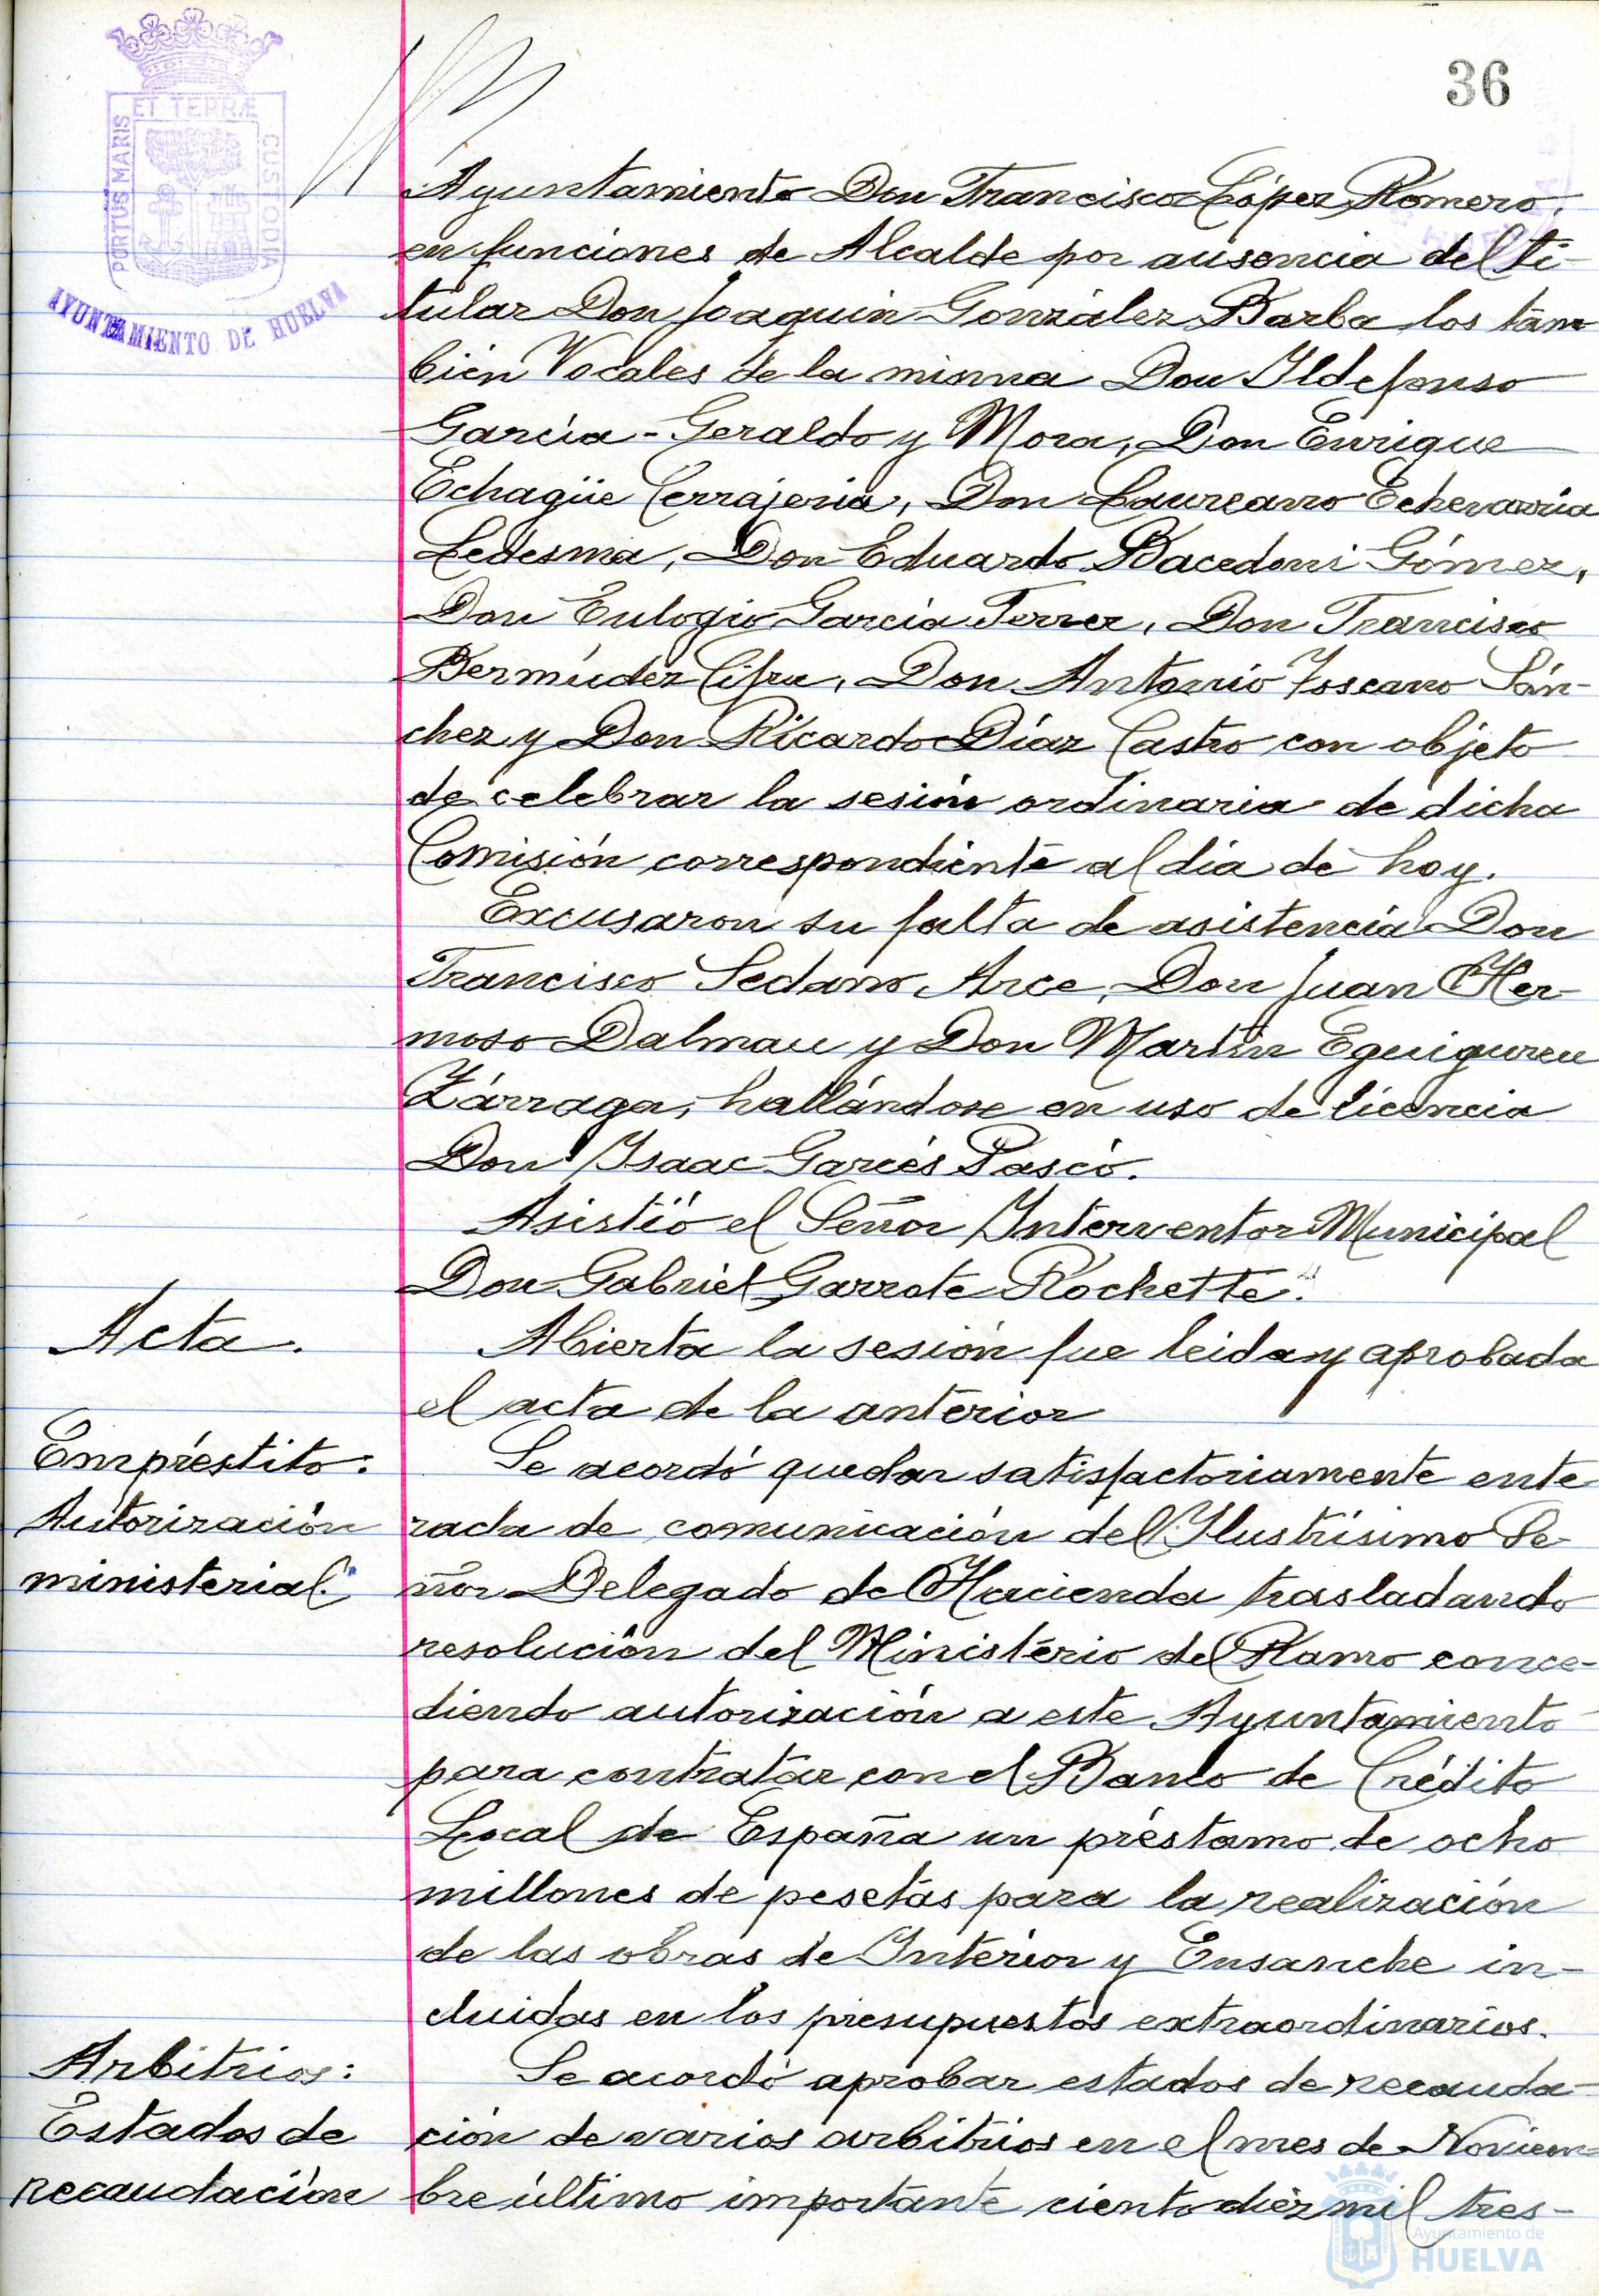 36
ET TERRÆ
PORTUS MARIS
CUSTODIA
AYUNTAMIENTO DE HUELVA
Ayuntamiento Don Francisco López Romero,
en funciones de Alcalde por ausencia del ti-
tular Don Joaquin González Barba los tam
bién Vocales de la misma Don Ildefonso
García-Geraldo y Mora, Don Enrique
Echagüe Cerrajeria, Don Laureano Echevarria
Ledesma, Don Eduardo Bacedoni Gómez,
Don Eulogio Garcia Ferrer, Don Francisco
Bermúdez Cifru, Don Antonio Toscano Sán-
chez y Don Ricardo Díaz Castro con objeto
de celebrar la sesión ordinaria de dicha
Comisión correspondiente al dia de hoy.
Excusaron su falta de asistencia Don
Francisco Sedano Arce, Don Juan Her-
moso Dalmau y Don Martín Eguiguren
Zárraga, hallándose en uso de licencia
Don Isaac Garcés Pascó.
Asistió el Señor Interventor Municipal
Don Gabriel Garrote Rochette.
Acta.
Abierta la sesión fue leida y aprobada
el acta de la anterior
Empréstito:
Autorización
ministerial.
Se acordó quedar satisfactoriamente ente
rada de comunicación del Ilustrísimo Se-
ñor Delegado de Hacienda trasladando
resolución del Ministério del Ramo conce-
diendo autorización a este Ayuntamiento
para contratar con el Banco de Crédito
Local de España un préstamo de ocho
millones de pesetas para la realización
de las obras de Interior y Ensanche in-
cluidas en los presupuestos extraordinarios.
Arbitrios:
Estados de
recaudación
Se acordó aprobar estados de recauda-
ción de varios arbitrios en el mes de Noviem=
bre último importante ciento diéz mil tres-
Ayuntamiento de
HUELVA